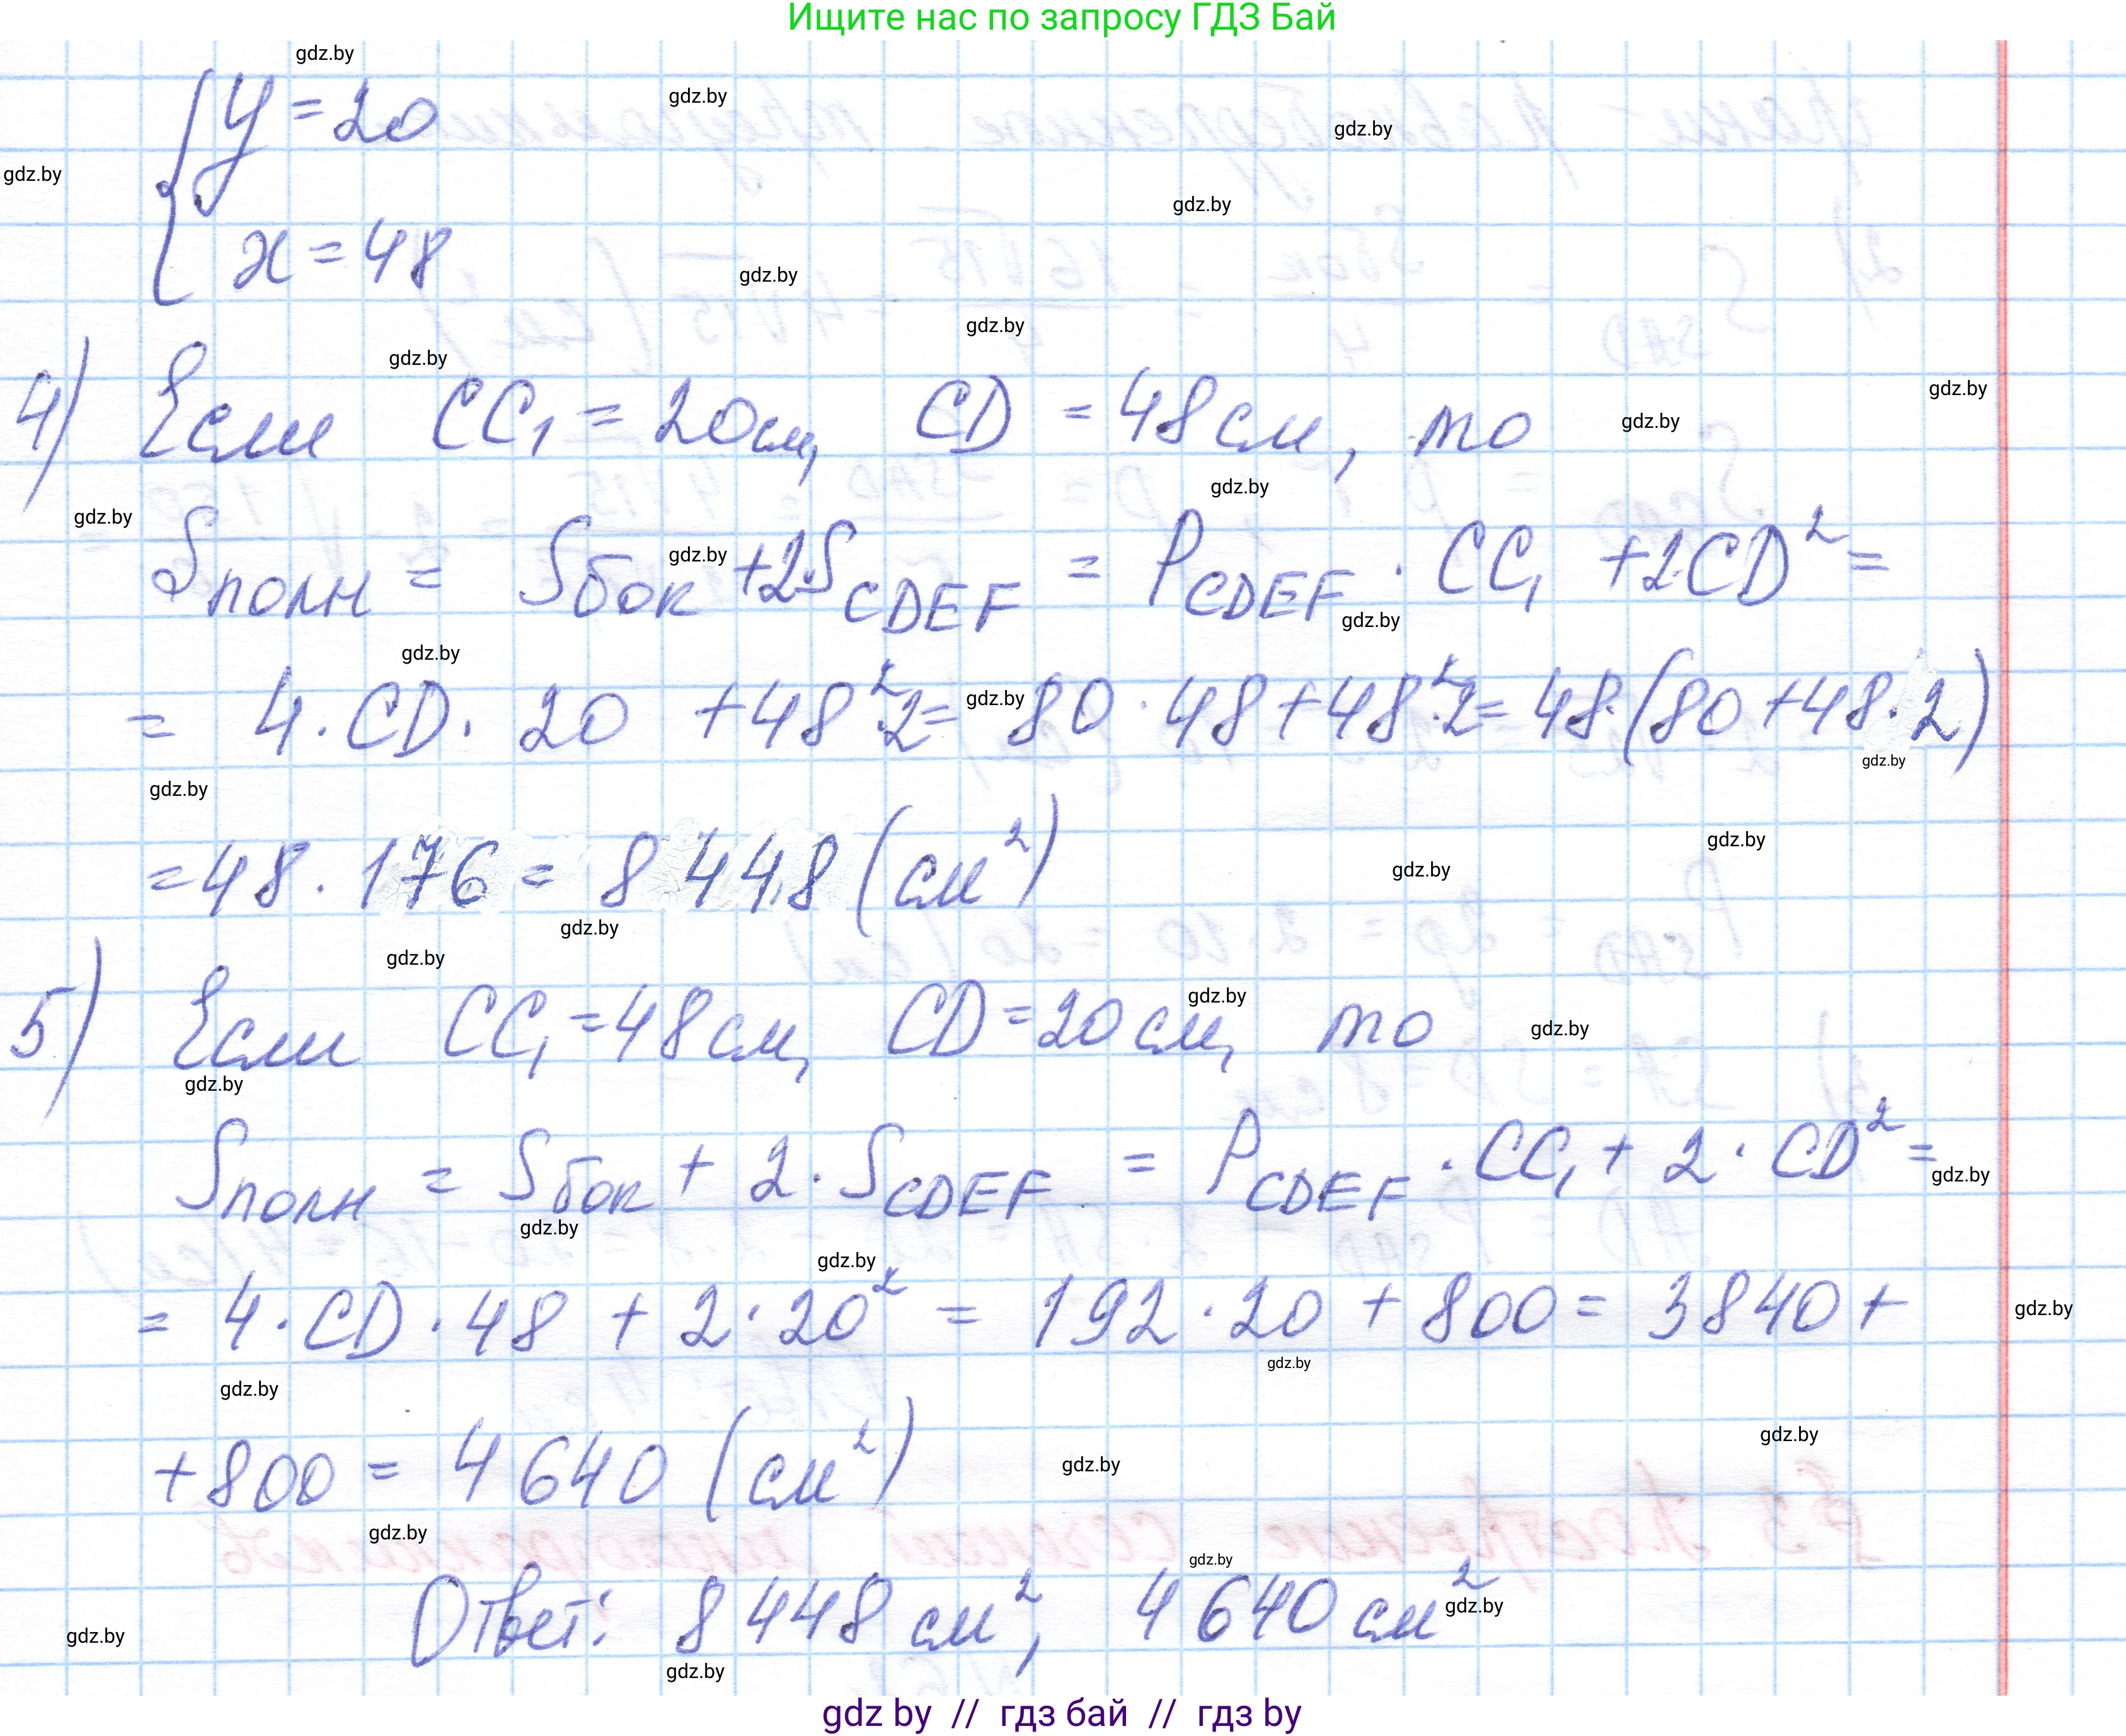 Ищите нас по запросу ГДЗ Бай
y = 20
x = 48
4) Если CC₁ = 20см, CD = 48см, то
Sполн = Sбок + 2·S_CDEF = P_CDEF · CC₁ + 2·CD² =
= 4 · CD · 20 + 48²·2 = 80 · 48 + 48²·2 = 48·(80 + 48·2)
= 48 · 176 = 8448 (см²)
5) Если CC₁ = 48см, CD = 20см, то
Sполн = Sбок + 2 · S_CDEF = P_CDEF · CC₁ + 2 · CD² =
= 4 · CD · 48 + 2 · 20² = 192 · 20 + 800 = 3840 +
+ 800 = 4640 (см²)
Ответ: 8448 см², 4640 см²
gdz by // гдз бай // гдз by